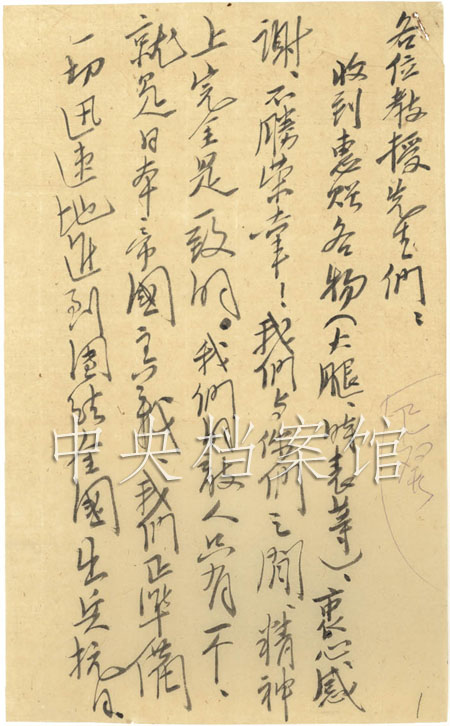 各位教授先生们：
收到惠贈各物（火腿、時表等）、衷心感
謝、不勝荣幸！我们与你們之間、精神
上完全是一致的。我們的敵人只有一个、
就是日本帝國主義、我們正準備
一切迅速地進到團結全國出兵抗日、
中央档案馆
1